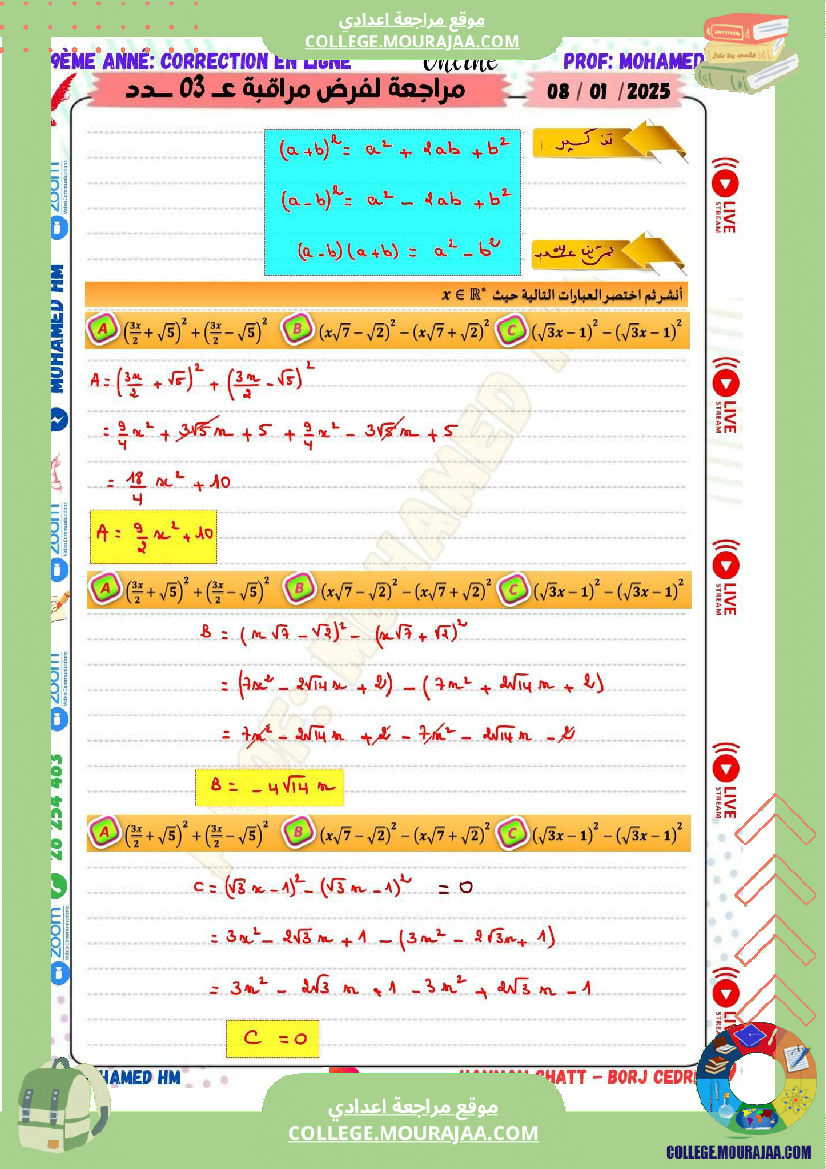 موقع مراجعة اعدادي
COLLEGE.MOURAJAA.COM
9ÈME ANNÉ: CORRECTION EN LIGNE
Online
PROF: MOHAMED
مراجعة لفرض مراقبة عـ 03 ـدد
08 / 01 /2025
تذكير
(a+b)² = a² + 2ab + b²
(a-b)² = a² - 2ab + b²
(a-b)(a+b) = a² - b²
أنشر ثم اختصر العبارات التالية حيث x ∈ ℝ*
A (3x/2 + √5)² + (3x/2 - √5)² B (x√7 - √2)² - (x√7 + √2)² C (√3x - 1)² - (√3x - 1)²
A = (3x/2 + √5)² + (3x/2 - √5)²
= 9/4 x² + 3√5 x + 5 + 9/4 x² - 3√5 x + 5
= 18/4 x² + 10
A = 9/2 x² + 10
A (3x/2 + √5)² + (3x/2 - √5)² B (x√7 - √2)² - (x√7 + √2)² C (√3x - 1)² - (√3x - 1)²
B = (x√7 - √2)² - (x√7 + √2)²
= (7x² - 2√14 x + 2) - (7x² + 2√14 x + 2)
= 7x² - 2√14 x + 2 - 7x² - 2√14 x - 2
B = -4√14 x
A (3x/2 + √5)² + (3x/2 - √5)² B (x√7 - √2)² - (x√7 + √2)² C (√3x - 1)² - (√3x - 1)²
C = (√3 x - 1)² - (√3 x - 1)² = 0
= 3x² - 2√3 x + 1 - (3x² - 2√3 x + 1)
= 3x² - 2√3 x + 1 - 3x² + 2√3 x - 1
C = 0
zoom
MOHAMED HM
zoom
zoom
28 254 403
zoom
LIVE
STREAM
LIVE
STREAM
LIVE
STREAM
LIVE
STREAM
HAMED HM
HAMMAM CHATT - BORJ CEDRI
موقع مراجعة اعدادي
COLLEGE.MOURAJAA.COM
COLLEGE.MOURAJAA.COM